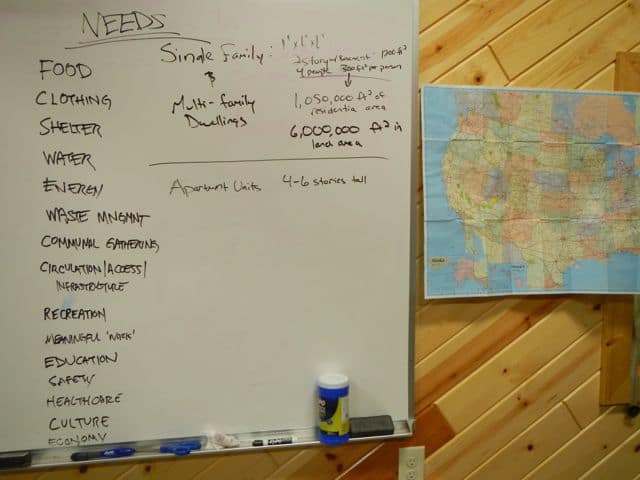 NEEDS
FOOD
CLOTHING
SHELTER
WATER
ENERGY
WASTE MNGMNT
COMMUNAL GATHERING
CIRCULATION/ACCESS/
INFRASTRUCTURE
RECREATION
MEANINGFUL 'WORK'
EDUCATION
SAFETY
HEALTHCARE
CULTURE
ECONOMY
Single Family:
&
Multi-family
Dwellings
1200 ft²
4 people 300 ft² per person
1,050,000 ft² of
residential area
6,000,000 ft² in
land area
Apartment Units 4-6 stories tall